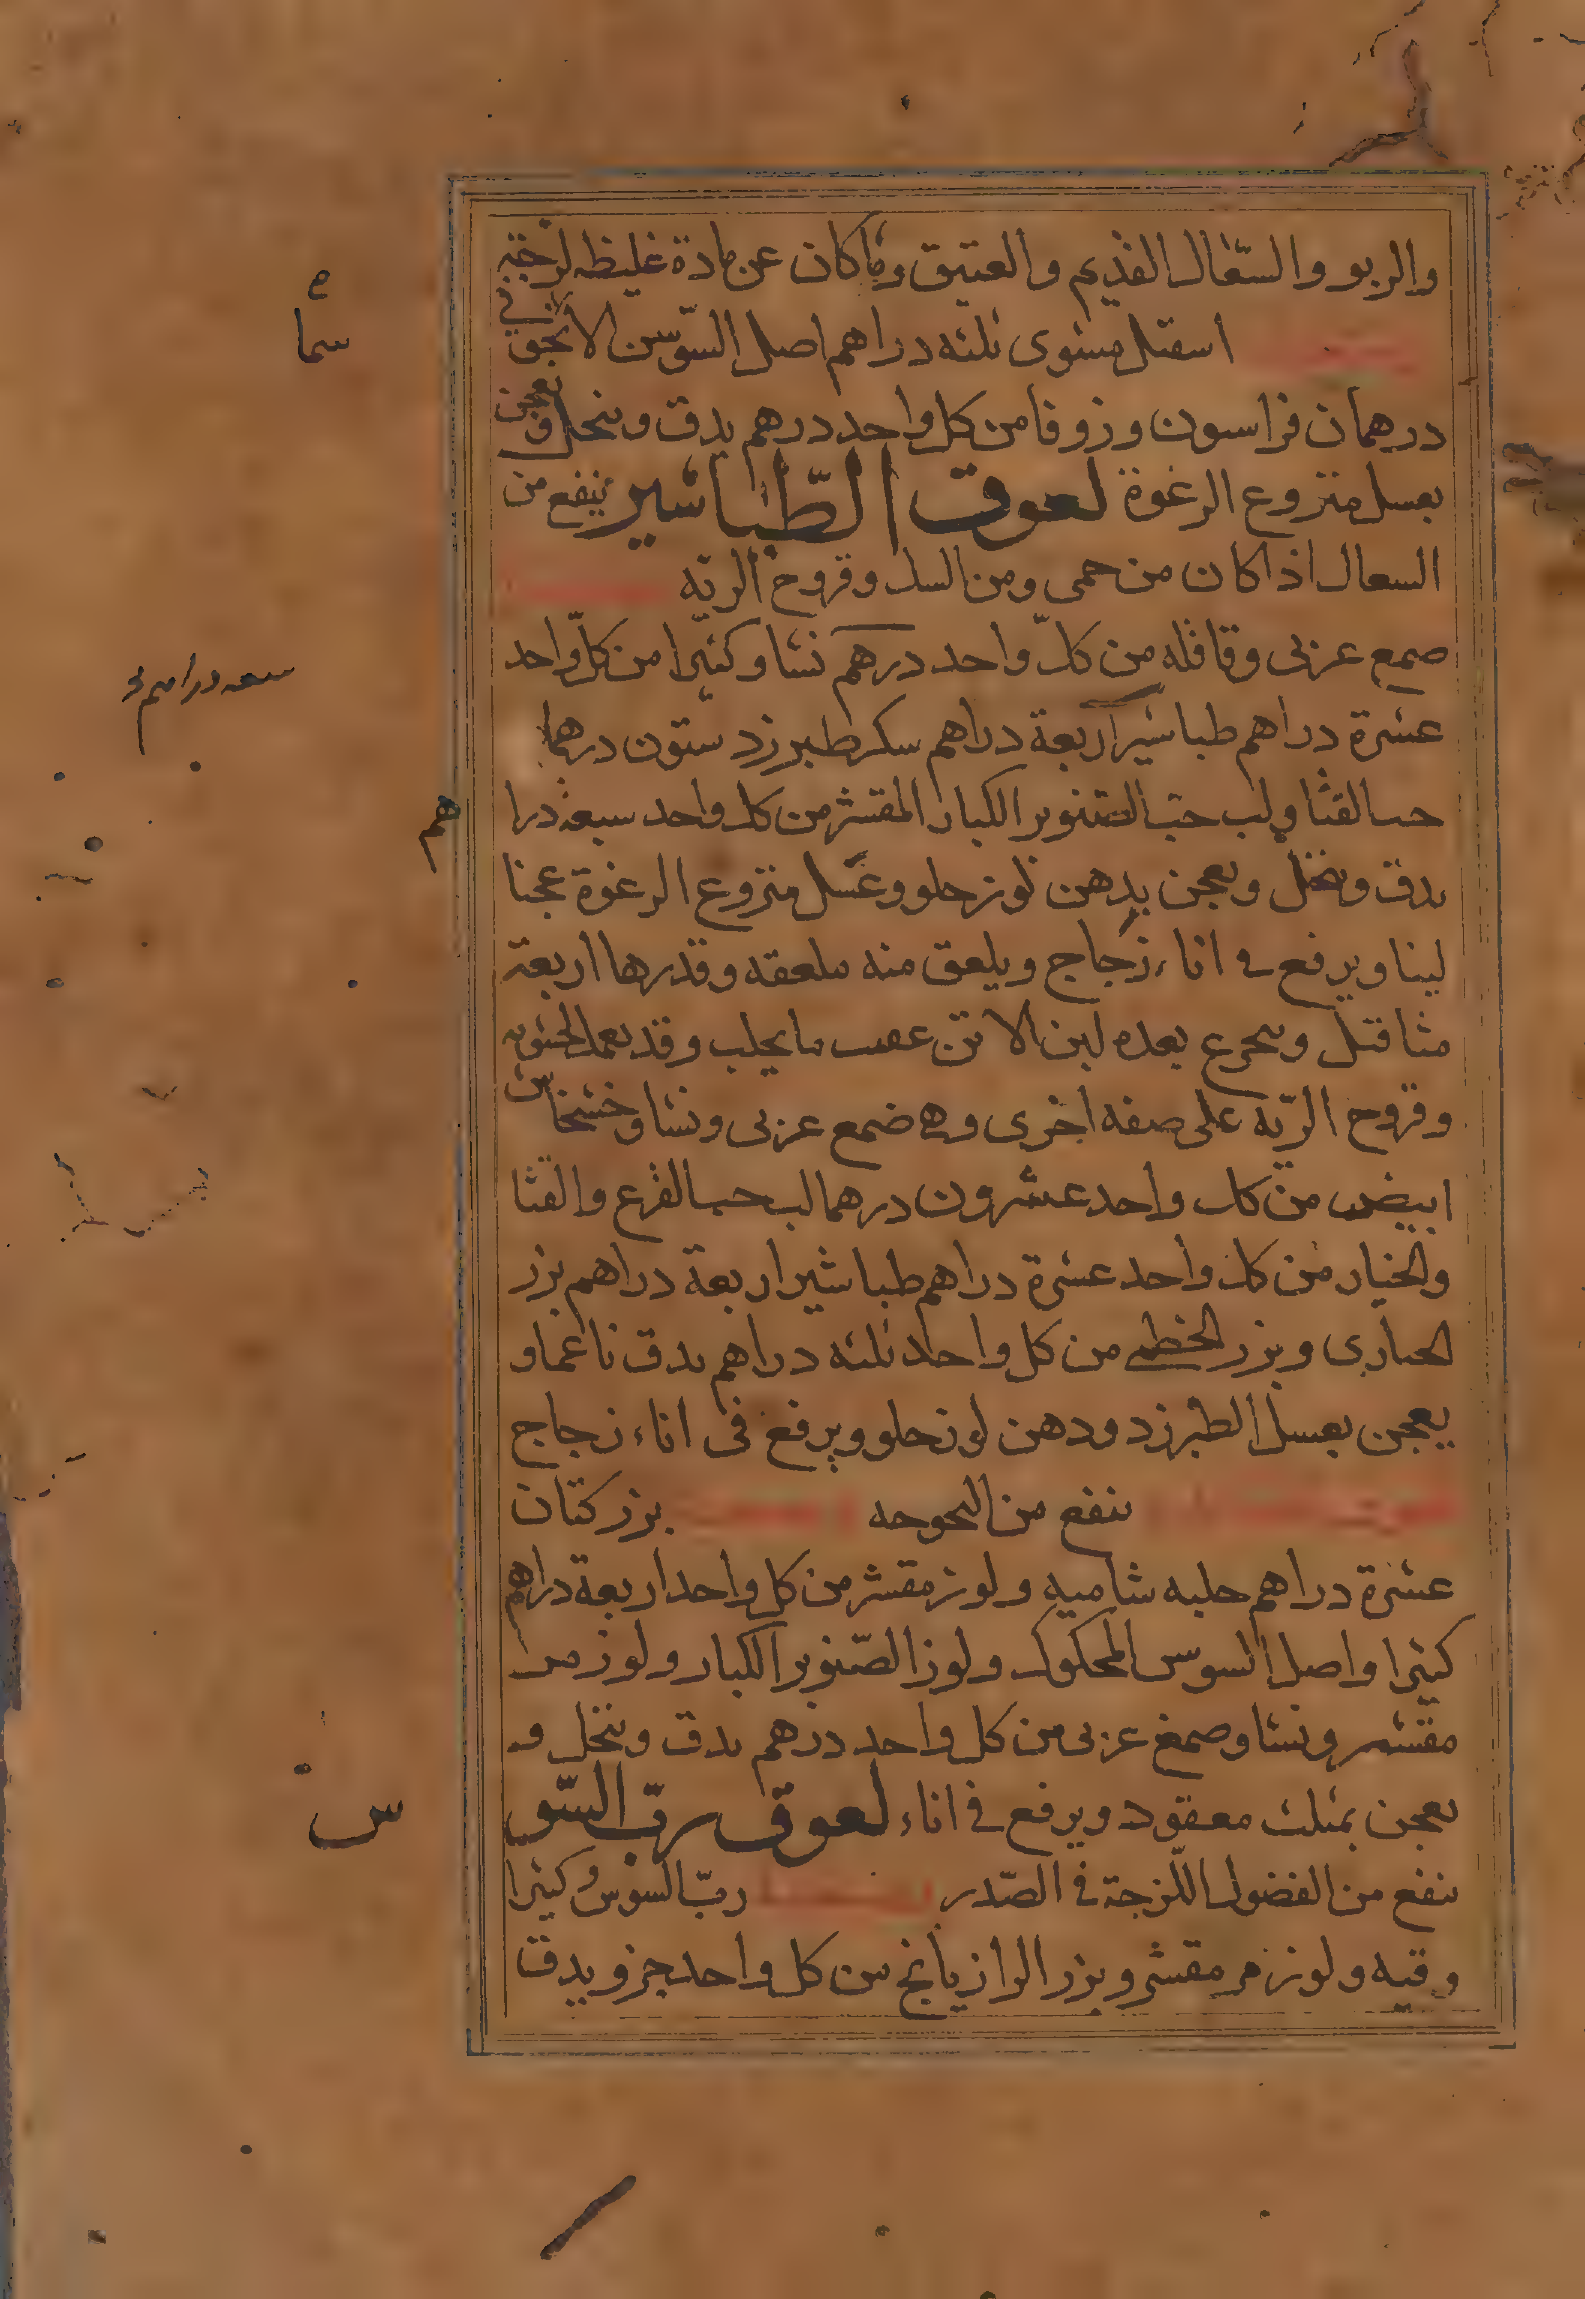 والربو والسّعال القديم والعتيق وما كان عن مادة غليظه لزجة
اسقيل مشوى ثلثه دراهم اصل السّوسن الاسمانجوني
درهمان فراسيون وزوفا من كل واحد درهم يدق وينخل ويعجن
بعسل منزوع الرغوة لعوق الطّباشير ينفع من
السعال اذا كان من حمى ومن السل وقروح الرئه
صمع عربى وقاقله من كلّ واحد درهم نشا وكثيرا من كلّ واحد
عشرة دراهم طباشير اربعة دراهم سكر طبرزد ستون درهما
حب القثا ولب حبّ الصّنوبر الكبار المقشر من كل واحد سبعة درا
هم
يدق وينخل ويعجن بدهن لوز حلو وعسل منزوع الرغوة عجنا
لينا ويرفع فى اناء زجاج ويلعق منه ملعقه وقدرها اربعة
مثاقيل ويتجرع بعده لبن الاتن عقيب ما يحلب وقد يعمل لخشونه
وقروح الرّئة على صفه اخرى وهى ضمع عربى ونشا وخشخاش
ابيض من كل واحد عشرون درهما لب حب القرع والقثا
والخيار من كل واحد عشرة دراهم طباشير اربعة دراهم بزر
الخبازى وبزر الخطمى من كل واحد ثلثه دراهم يدق ناعما و
يعجن بعسل الطبرزد ودهن لوز حلو ويرفع فى اناء زجاج
ينفع من البحوحه بزر كتان
عشرة دراهم حلبه شاميه ولوز مقشر من كل واحد اربعة دراهم
كثيرا واصل السوس المحكوك ولوز الصّنوبر الكبار ولوز مر
مقشر ونشا وصمغ عربى من كل واحد درهم يدق وينخل و
يعجن بمثلث معقود ويرفع فى اناء لعوق ربّ السّو
س
ينفع من الفضول اللّزجة فى الصّدر ربّ السّوس وكثيرا
وقيه ولوز مر مقشر وبزر الرازيانج من كل واحد جزو يدق